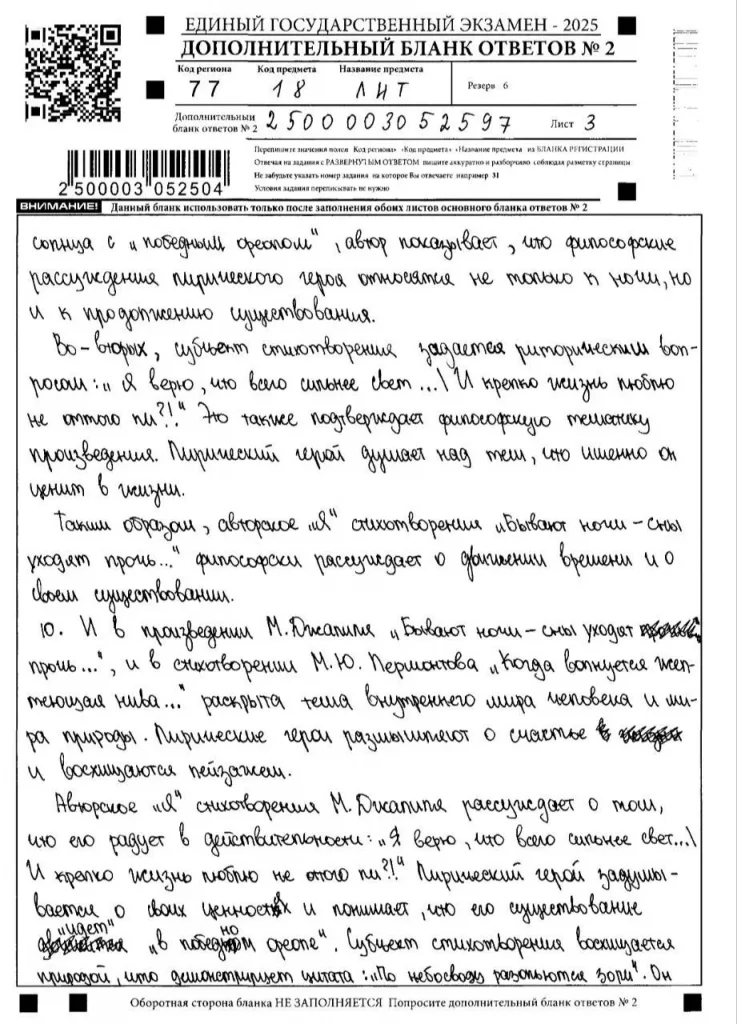 ЕДИНЫЙ ГОСУДАРСТВЕННЫЙ ЭКЗАМЕН - 2025
ДОПОЛНИТЕЛЬНЫЙ БЛАНК ОТВЕТОВ № 2
Код региона Код предмета Название предмета Резерв 6
77 18 ЛИТ
Дополнительный бланк ответов № 2 2500003052597 Лист 3
Перепишите значения полей Код региона» «Код предмета» «Название предмета из БЛАНКА РЕГИСТРАЦИИ
Отвечая на задания с РАЗВЕРНУТЫМ ОТВЕТОМ пишите аккуратно и разборчиво соблюдая разметку страницы
Не забудьте указать номер задания на которое Вы отвечаете например 31
Условия задания переписывать не нужно
2 500003 052504
ВНИМАНИЕ! Данный бланк использовать только после заполнения обоих листов основного бланка ответов № 2
солнца с „победным ореолом“, автор показывает, что философские
рассуждения лирического героя относятся не только к ночи, но
и к продолжению существования.
Во-вторых, субъект стихотворения задаётся риторическим воп-
росом: „Я верю, что всего сильнее свет...\ И крепко жизнь люблю
не оттого ли?!“ Это также подтверждает философскую тематику
произведения. Лирический герой думает над тем, что именно он
ценит в жизни.
Таким образом, авторское „я“ стихотворения „Бывают ночи – сны
уходят прочь...“ философски рассуждает о движении времени и о
своём существовании.
10. И в произведении М. Джалиля „Бывают ночи – сны уходят
прочь...“, и в стихотворении М.Ю. Лермонтова „Когда волнуется жел-
теющая нива...“ раскрыта тема внутреннего мира человека и ми-
ра природы. Лирические герои размышляют о счастье
и восхищаются пейзажем.
Авторское „я“ стихотворения М. Джалиля рассуждает о том,
что его радует в действительности: „Я верю, что всего сильнее свет...\
И крепко жизнь люблю не отого ли?!“ Лирический герой задумы-
вается о своих ценностях и понимает, что его существование
„идёт“ „в победном ореоле“. Субъект стихотворения восхищается
природой, что демонстрирует цитата: „По небосводу разольются зори“. Он
Оборотная сторона бланка НЕ ЗАПОЛНЯЕТСЯ Попросите дополнительный бланк ответов № 2